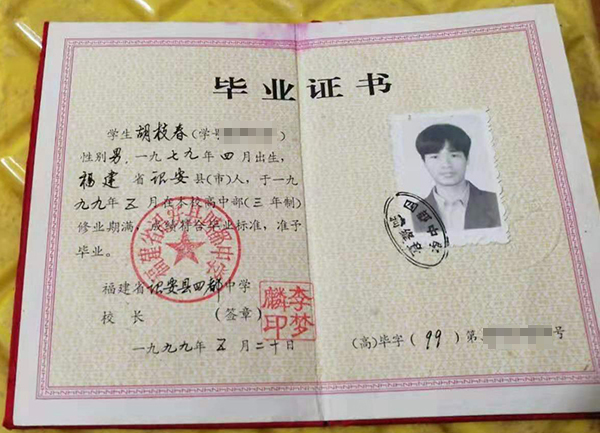 毕业证书
学生 胡枝春 (学号 ),
性别男,一九七九年四月出生,
福建省诏安县(市)人,于一九
九九年五月在本校高中部(三年制)
修业期满,成绩符合毕业标准,准予
毕业。
福建省诏安县四都中学
校长 (签章)
李梦麟印
一九九九年五月二十日
(高)毕字(99)第 号
福建省诏安县四都中学